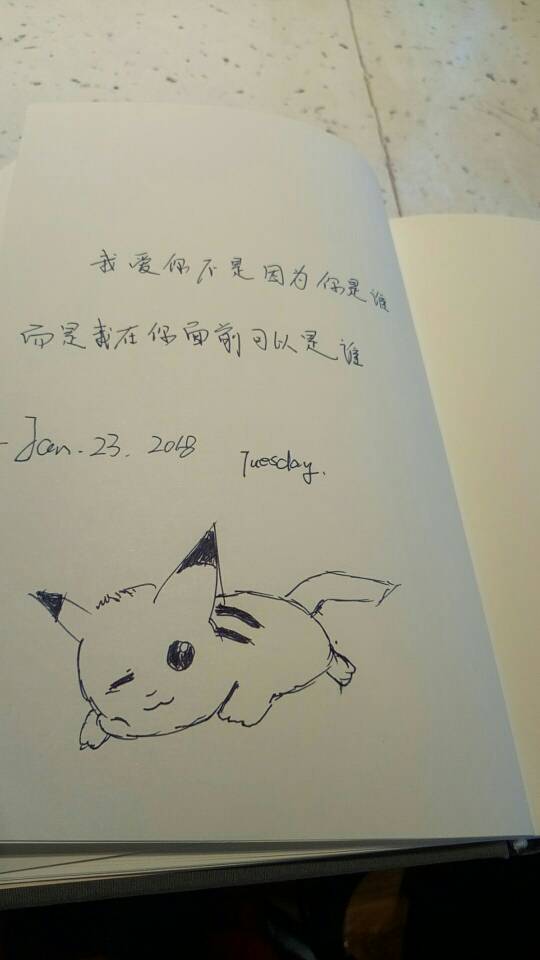 我爱你不是因为你是谁
而是我在你面前可以是谁
Jan. 23. 2018 Tuesday.